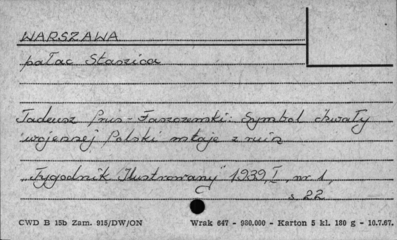 WARSZAWA
pałac Staszica
Tadeusz Prus-Faszczewski: Symbol chwały
wojennej Polski wstaje z ruin
"Tygodnik Ilustrowany" 1939, I, nr. 1,
s. 22
CWD B 15b Zam. 915/DW/ON Wrak 647 - 980,000 - Karton 5 kl. 180 g - 10.7.67.